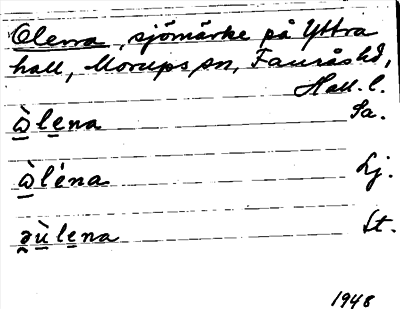 Olena, sjömärke på Yttra
hall, Morups sn, Faurås hd,
Hall. l.
ὼlena Sa.
ὼléna Lj.
əùlena St.
1948